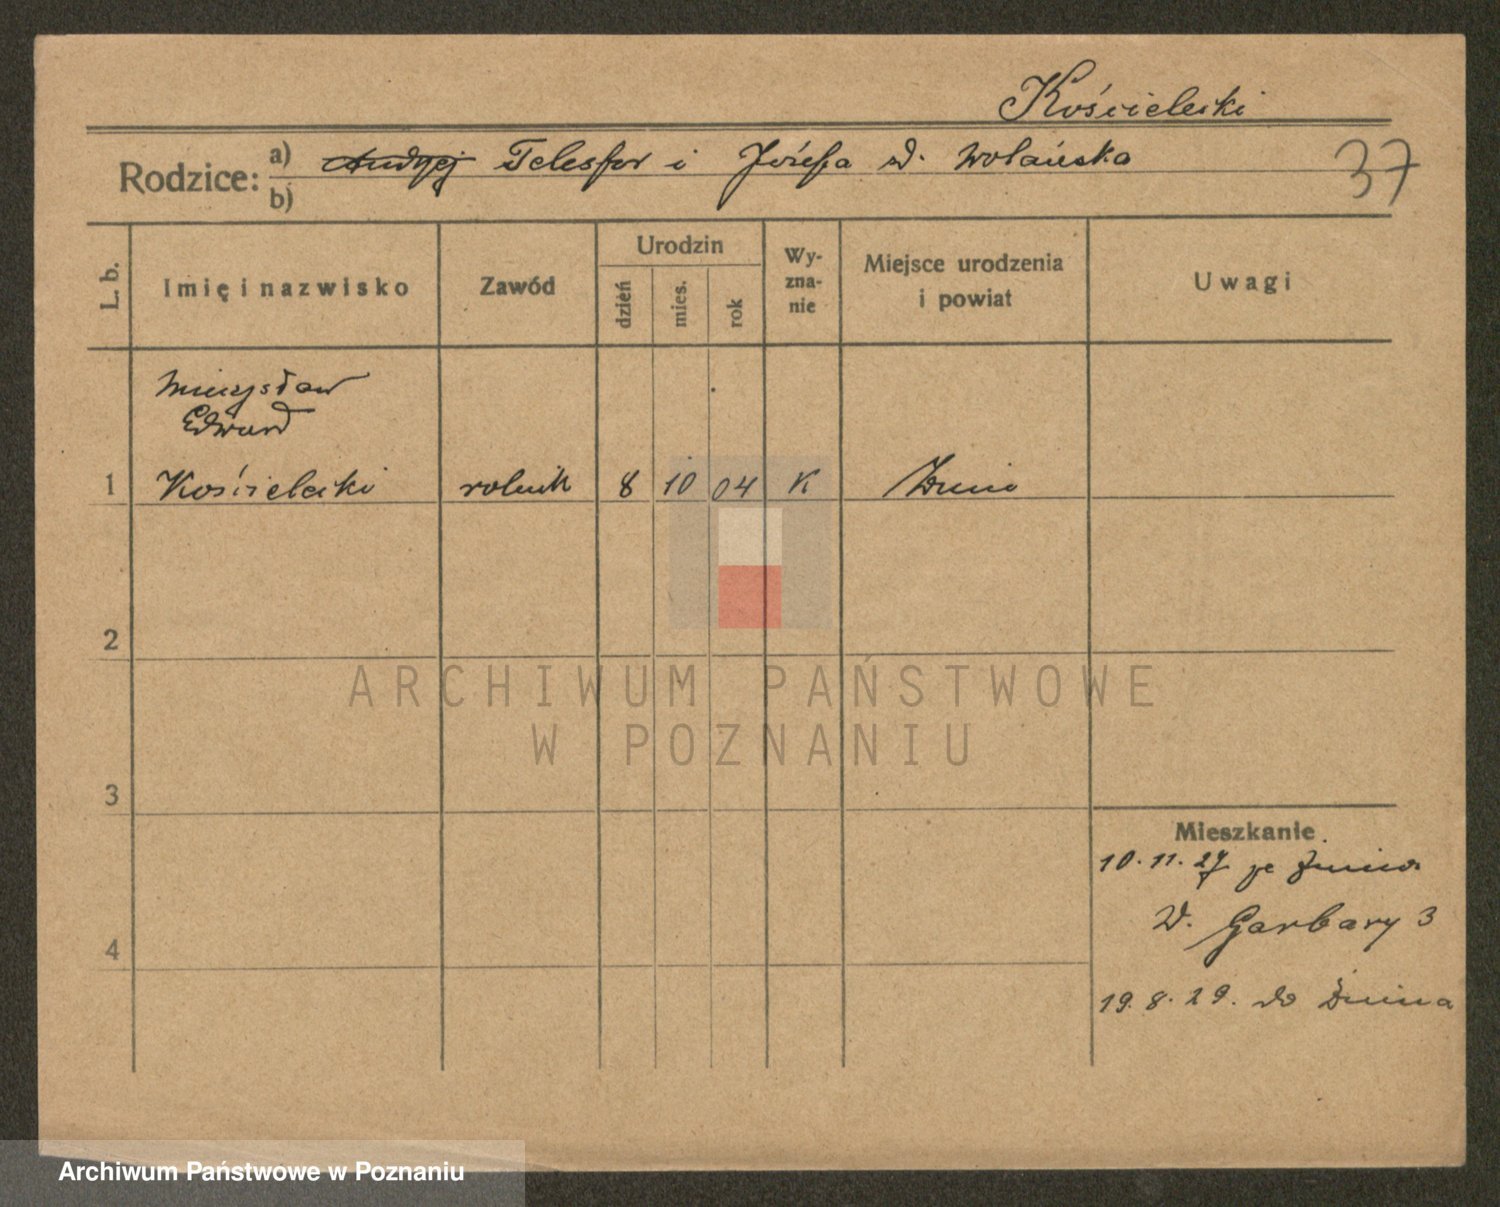 Kościelecki
Rodzice: a) Andrzej Telesfor i Józefa d. Wolańska
b)
37
L. b.
Imię i nazwisko
Zawód
Urodzin
dzień
mies.
rok
Wy-
zna-
nie
Miejsce urodzenia
i powiat
Uwagi
Mieczysław
Edward
1 Kościelecki rolnik 8 10 04 K Żnin
2
3
4
ARCHIWUM PAŃSTWOWE
W POZNANIU
Mieszkanie
10.11.27 ze Żnina
W. Garbary 3
19.8.29. do Żnina
Archiwum Państwowe w Poznaniu